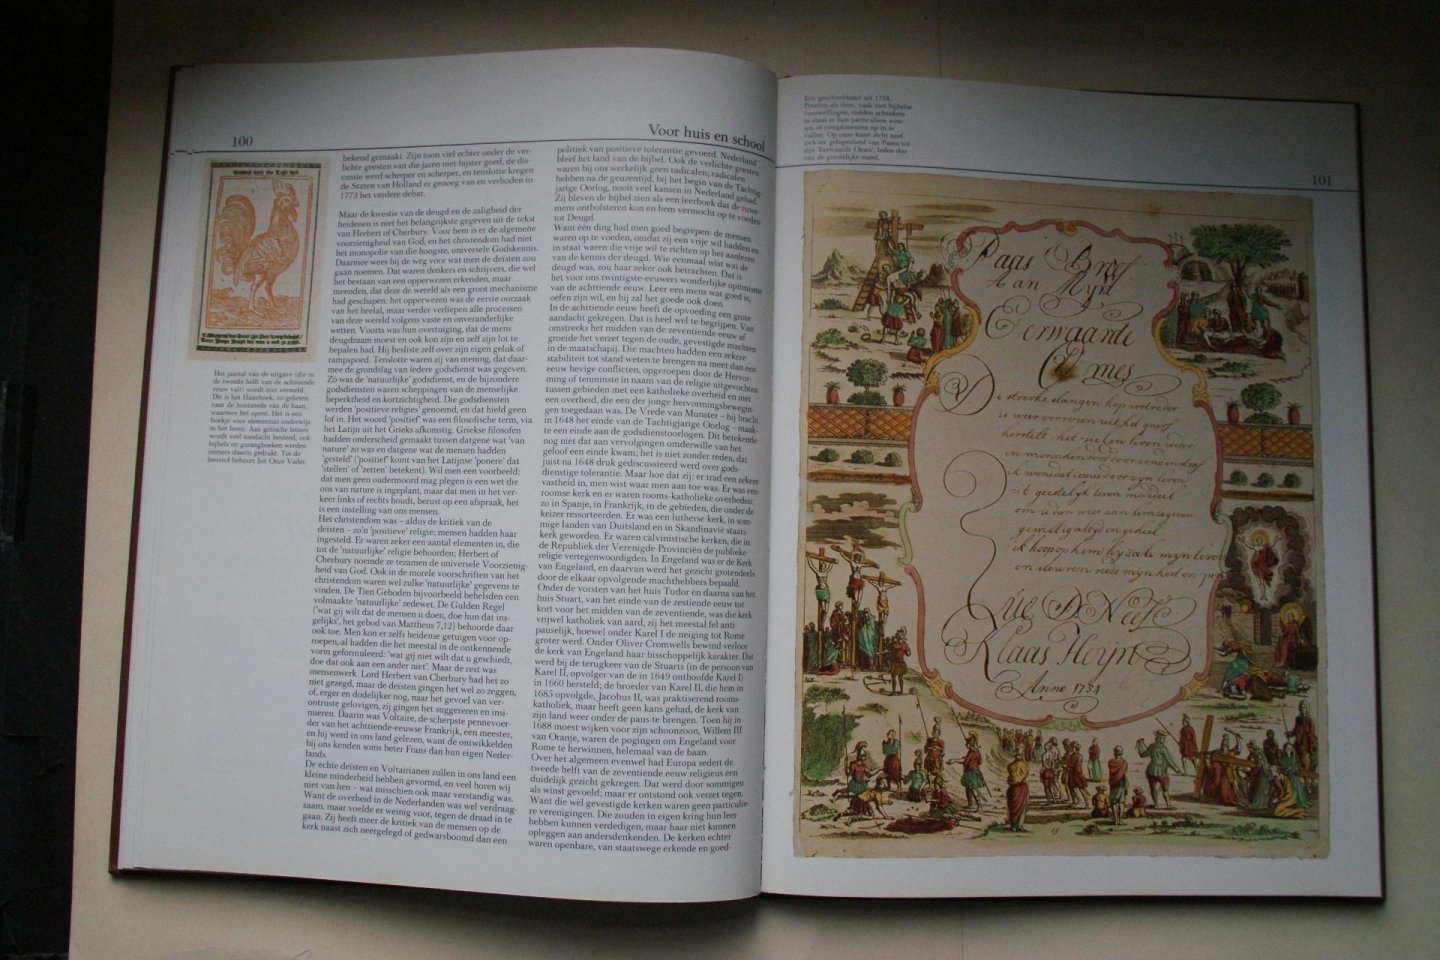 100
Voor huis en school
bekend gemaakt. Zijn toon viel echter onder de ver-
lichte geesten van die jaren niet bijster goed, de dis-
cussie werd scherper en scherper, en tenslotte kregen
de Staten van Holland er genoeg van en verboden in
1773 het verdere debat.
Maar de kwestie van de deugd en de zaligheid der
heidenen is niet het belangrijkste gegeven uit de tekst
van Herbert of Cherbury. Voor hem is er de algemene
voorzienigheid van God, en het christendom had niet
het monopolie van die hoogste, universele Godskennis.
Daarmee wees hij de weg voor wat men de deïsten zou
gaan noemen. Dat waren denkers en schrijvers, die wel
het bestaan van een opperwezen erkenden, maar
meenden, dat deze de wereld als een groot mechanisme
had geschapen: het opperwezen was de eerste oorzaak
van het heelal, maar verder verliepen alle processen
van deze wereld volgens vaste en onveranderlijke
wetten. Voorts was hun overtuiging, dat de mens
deugdzaam moest en ook kon zijn en zelf zijn lot te
bepalen had. Hij besliste zelf over zijn eigen geluk of
rampspoed. Tenslotte waren zij van mening, dat daar-
mee de grondslag van iedere godsdienst was gegeven.
Zó was de 'natuurlijke' godsdienst, en de bijzondere
godsdiensten waren scheppingen van de menselijke
beperktheid en kortzichtigheid. Die godsdiensten
werden 'positieve religies' genoemd, en dat hield geen
lof in. Het woord 'positief' was een filosofische term, via
het Latijn uit het Grieks afkomstig. Griekse filosofen
hadden onderscheid gemaakt tussen datgene wat 'van
nature' zo was en datgene wat de mensen hadden
'gesteld' ('positief' komt van het Latijnse 'ponere' dat
'stellen' of 'zetten' betekent). Wil men een voorbeeld:
dat men geen oudermoord mag plegen is een wet die
ons van nature is ingeplant, maar dat men in het ver-
keer links of rechts houdt, berust op een afspraak, het
is een instelling van ons mensen.
Het christendom was – aldus de kritiek van de
deïsten – zo'n 'positieve' religie; mensen hadden haar
ingesteld. Er waren zeker een aantal elementen in, die
tot de 'natuurlijke' religie behoorden; Herbert of
Cherbury noemde ze tezamen de universele Voorzienig-
heid van God. Ook in de morele voorschriften van het
christendom waren wel zulke 'natuurlijke' gegevens te
vinden. De Tien Geboden bijvoorbeeld behelsden een
volmaakte 'natuurlijke' zedewet. De Gulden Regel
('wat gij wilt dat de mensen u doen, doe hun dat ins-
gelijks', het gebod van Mattheus 7,12) behoorde daar
ook toe. Men kon er zelfs heidense getuigen voor op-
roepen, al hadden die het meestal in de ontkennende
vorm geformuleerd: 'wat gij niet wilt dat u geschiedt,
doe dat ook aan een ander niet'. Maar de rest was
mensenwerk. Lord Herbert van Cherbury had het zo
niet gezegd, maar de deïsten gingen het wel zo zeggen,
of, erger en dodelijker nog, naar het gevoel van ver-
ontruste gelovigen, zij gingen het suggereren en insi-
nueren. Daarin was Voltaire, de scherpste pennevoer-
der van het achttiende-eeuwse Frankrijk, een meester,
en hij werd in ons land gelezen, want de ontwikkelden
bij ons kenden soms beter Frans dan hun eigen Neder-
lands.
De echte deïsten en Voltairianen zullen in ons land een
kleine minderheid hebben gevormd, en veel horen wij
niet van hen – wat misschien ook maar verstandig was.
Want de overheid in de Nederlanden was wel verdraag-
zaam, maar voelde er weinig voor, tegen de draad in te
gaan. Zij heeft meer de kritiek van de mensen op de
kerk naast zich neergelegd of gedwarsboomd dan een
Het jaartal van de uitgave (die in
de tweede helft van de achttiende
eeuw valt) wordt niet vermeld.
Dit is het Haneboek, zo geheten
naar de houtsnede van de haan,
waarmee het opent. Het is een
boekje voor elementair onderwijs
in het lezen. Aan gotische letters
wordt veel aandacht besteed, ook
bijbels en gezangboeken werden
immers daarin gedrukt. Tot de
leesstof behoort het Onze Vader.
politiek van positieve tolerantie gevoerd. Nederland
bleef het land van de bijbel. Ook de verlichte geesten
waren bij ons werkelijk geen radicalen; radicalen
hebben na de geuzentijd, bij het begin van de Tachtig-
jarige Oorlog, nooit veel kansen in Nederland gehad.
Zij bleven de bijbel zien als een leerboek dat de ruwe
mens ontbolsteren kon en hem vermocht op te voeden
tot Deugd.
Want één ding had men goed begrepen: de mensen
waren op te voeden, omdat zij een vrije wil hadden en
in staat waren die vrije wil te richten op het aanleren
van de kennis der deugd. Wie eenmaal wist wat de
deugd was, zou haar zeker ook betrachten. Dat is
het voor ons twintigste-eeuwers wonderlijke optimisme
van de achttiende eeuw. Leer een mens wat goed is,
oefen zijn wil, en hij zal het goede ook doen.
In de achttiende eeuw heeft de opvoeding een grote
aandacht gekregen. Dat is heel wel te begrijpen. Van
omstreeks het midden van de zeventiende eeuw af
groeide het verzet tegen de oude, gevestigde machten
in de maatschapij. Die machten hadden een zekere
stabiliteit tot stand weten te brengen na meer dan een
eeuw hevige conflicten, opgeroepen door de Hervor-
ming of tenminste in naam van de religie uitgevochten
tussen gebieden met een katholieke overheid en met
een overheid, die een der jonge hervormingsbewegin-
gen toegedaan was. De Vrede van Munster – hij bracht
in 1648 het einde van de Tachtigjarige Oorlog – maak-
te een einde aan de godsdienstoorlogen. Dit betekende
nog niet dat aan vervolgingen omderwille van het
geloof een einde kwam; het is niet zonder reden, dat
juist na 1648 druk gediscussieerd werd over gods-
dienstige tolerantie. Maar hoe dat zij: er trad een zekere
vastheid in, men wist waar men aan toe was. Er was een
roomse kerk en er waren rooms-katholieke overheden:
zo in Spanje, in Frankrijk, in de gebieden, die onder de
keizer ressorteerden. Er was een lutherse kerk, in som-
mige landen van Duitsland en in Skandinavië staats-
kerk geworden. Er waren calvinistische kerken, die in
de Republiek der Verenigde Provinciën de publieke
religie vertegenwoordigden. In Engeland was er de Kerk
van Engeland, en daarvan werd het gezicht grotendeels
door de elkaar opvolgende machthebbers bepaald.
Onder de vorsten van het huis Tudor en daarna van het
huis Stuart, van het einde van de zestiende eeuw tot
kort voor het midden van de zeventiende, was die kerk
vrijwel katholiek van aard, zij het meestal fel anti-
pauselijk, hoewel onder Karel I de neiging tot Rome
groter werd. Onder Oliver Cromwells bewind verloor
de kerk van Engeland haar bisschoppelijk karakter. Dat
werd bij de terugkeer van de Stuarts (in de persoon van
Karel II, opvolger van de in 1649 onthoofde Karel I)
in 1660 hersteld; de broeder van Karel II, die hem in
1685 opvolgde, Jacobus II, was praktiserend rooms-
katholiek, maar heeft geen kans gehad, de kerk van
zijn land weer onder de paus te brengen. Toen hij in
1688 moest wijken voor zijn schoonzoon, Willem III
van Oranje, waren de pogingen om Engeland voor
Rome te herwinnen, helemaal van de baan.
Over het algemeen evenwel had Europa sedert de
tweede helft van de zeventiende eeuw religieus een
duidelijk gezicht gekregen. Dat werd door sommigen
als winst gevoeld; maar er ontstond ook verzet tegen.
Want die wel gevestigde kerken waren geen particulie-
re verenigingen. Die zouden in eigen kring hun leer
hebben kunnen verdedigen, maar haar niet kunnen
opleggen aan andersdenkenden. De kerken echter
waren openbare, van staatswege erkende en goed-
Een geschenkkaart uit 1734.
Prenten als deze, vaak met bijbelse
voorstellingen, stelden schenkers
in staat er hun particuliere wen-
sen of complimenten op in te
vullen. Op onze kaart richt neef
zich ter gelegenheid van Pasen tot
zijn 'Eerwaarde Omes', leden dus
van de geestelijke stand.
101
Paas Brief
Aan Myn
Eerwaarde
Omes
De strikke slangen kop vertreder
is weer verresen uit het graf
herstelt het
in menschen
ik wens dat iesus door zyn leven
ut geestelyk leven
om u dan weer aan hem te geven
gewillig altyd en geheel
ik hoop op hem hy zal myn leven
en stieuren reés myn hert en
UE D W Neef
Klaas Heyn
Anno 1734